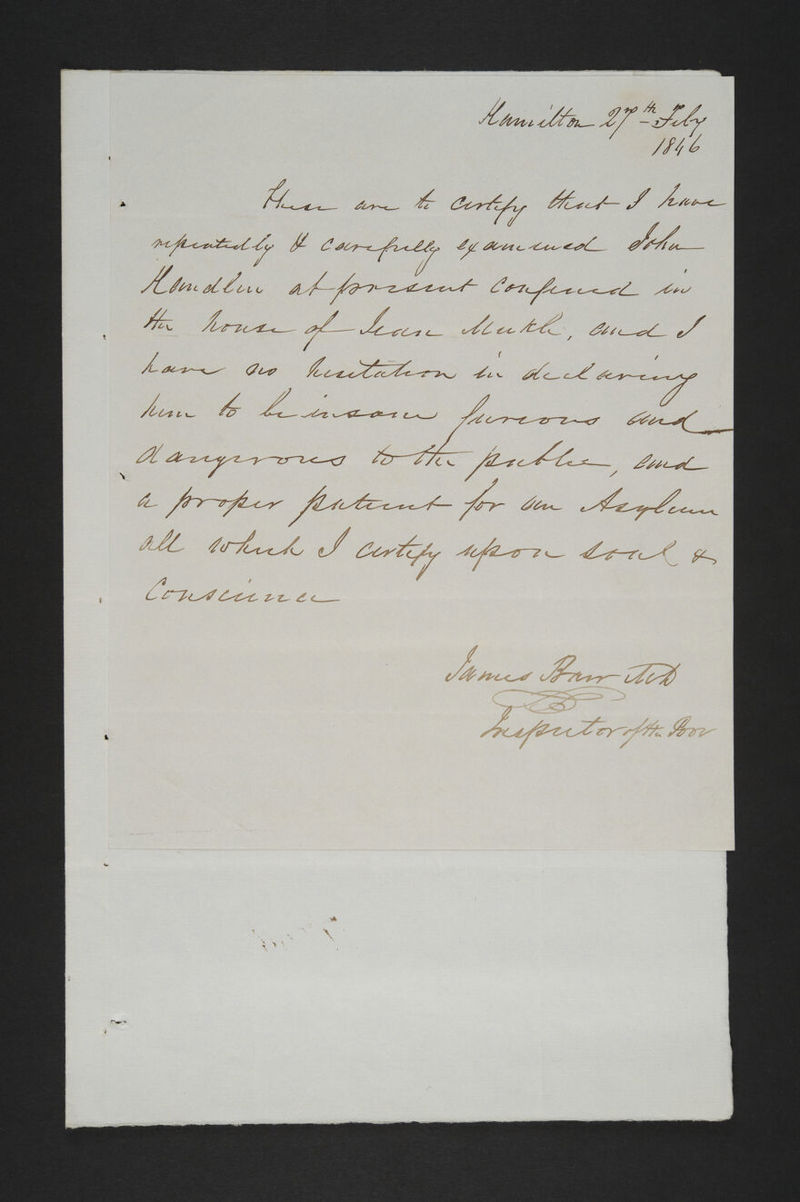 Hamilton 27th Feby
1846
These are to certify that I have
repeatedly & carefully examined John
Handlin at present confined in
the house of Jean Meikle, and I
have no hesitation in declaring
him to be insane furious and
dangerous to the public, and
a proper patient for an Asylum
all which I certify upon soul &
Conscience
James Barr MD
Inspector of the Poor